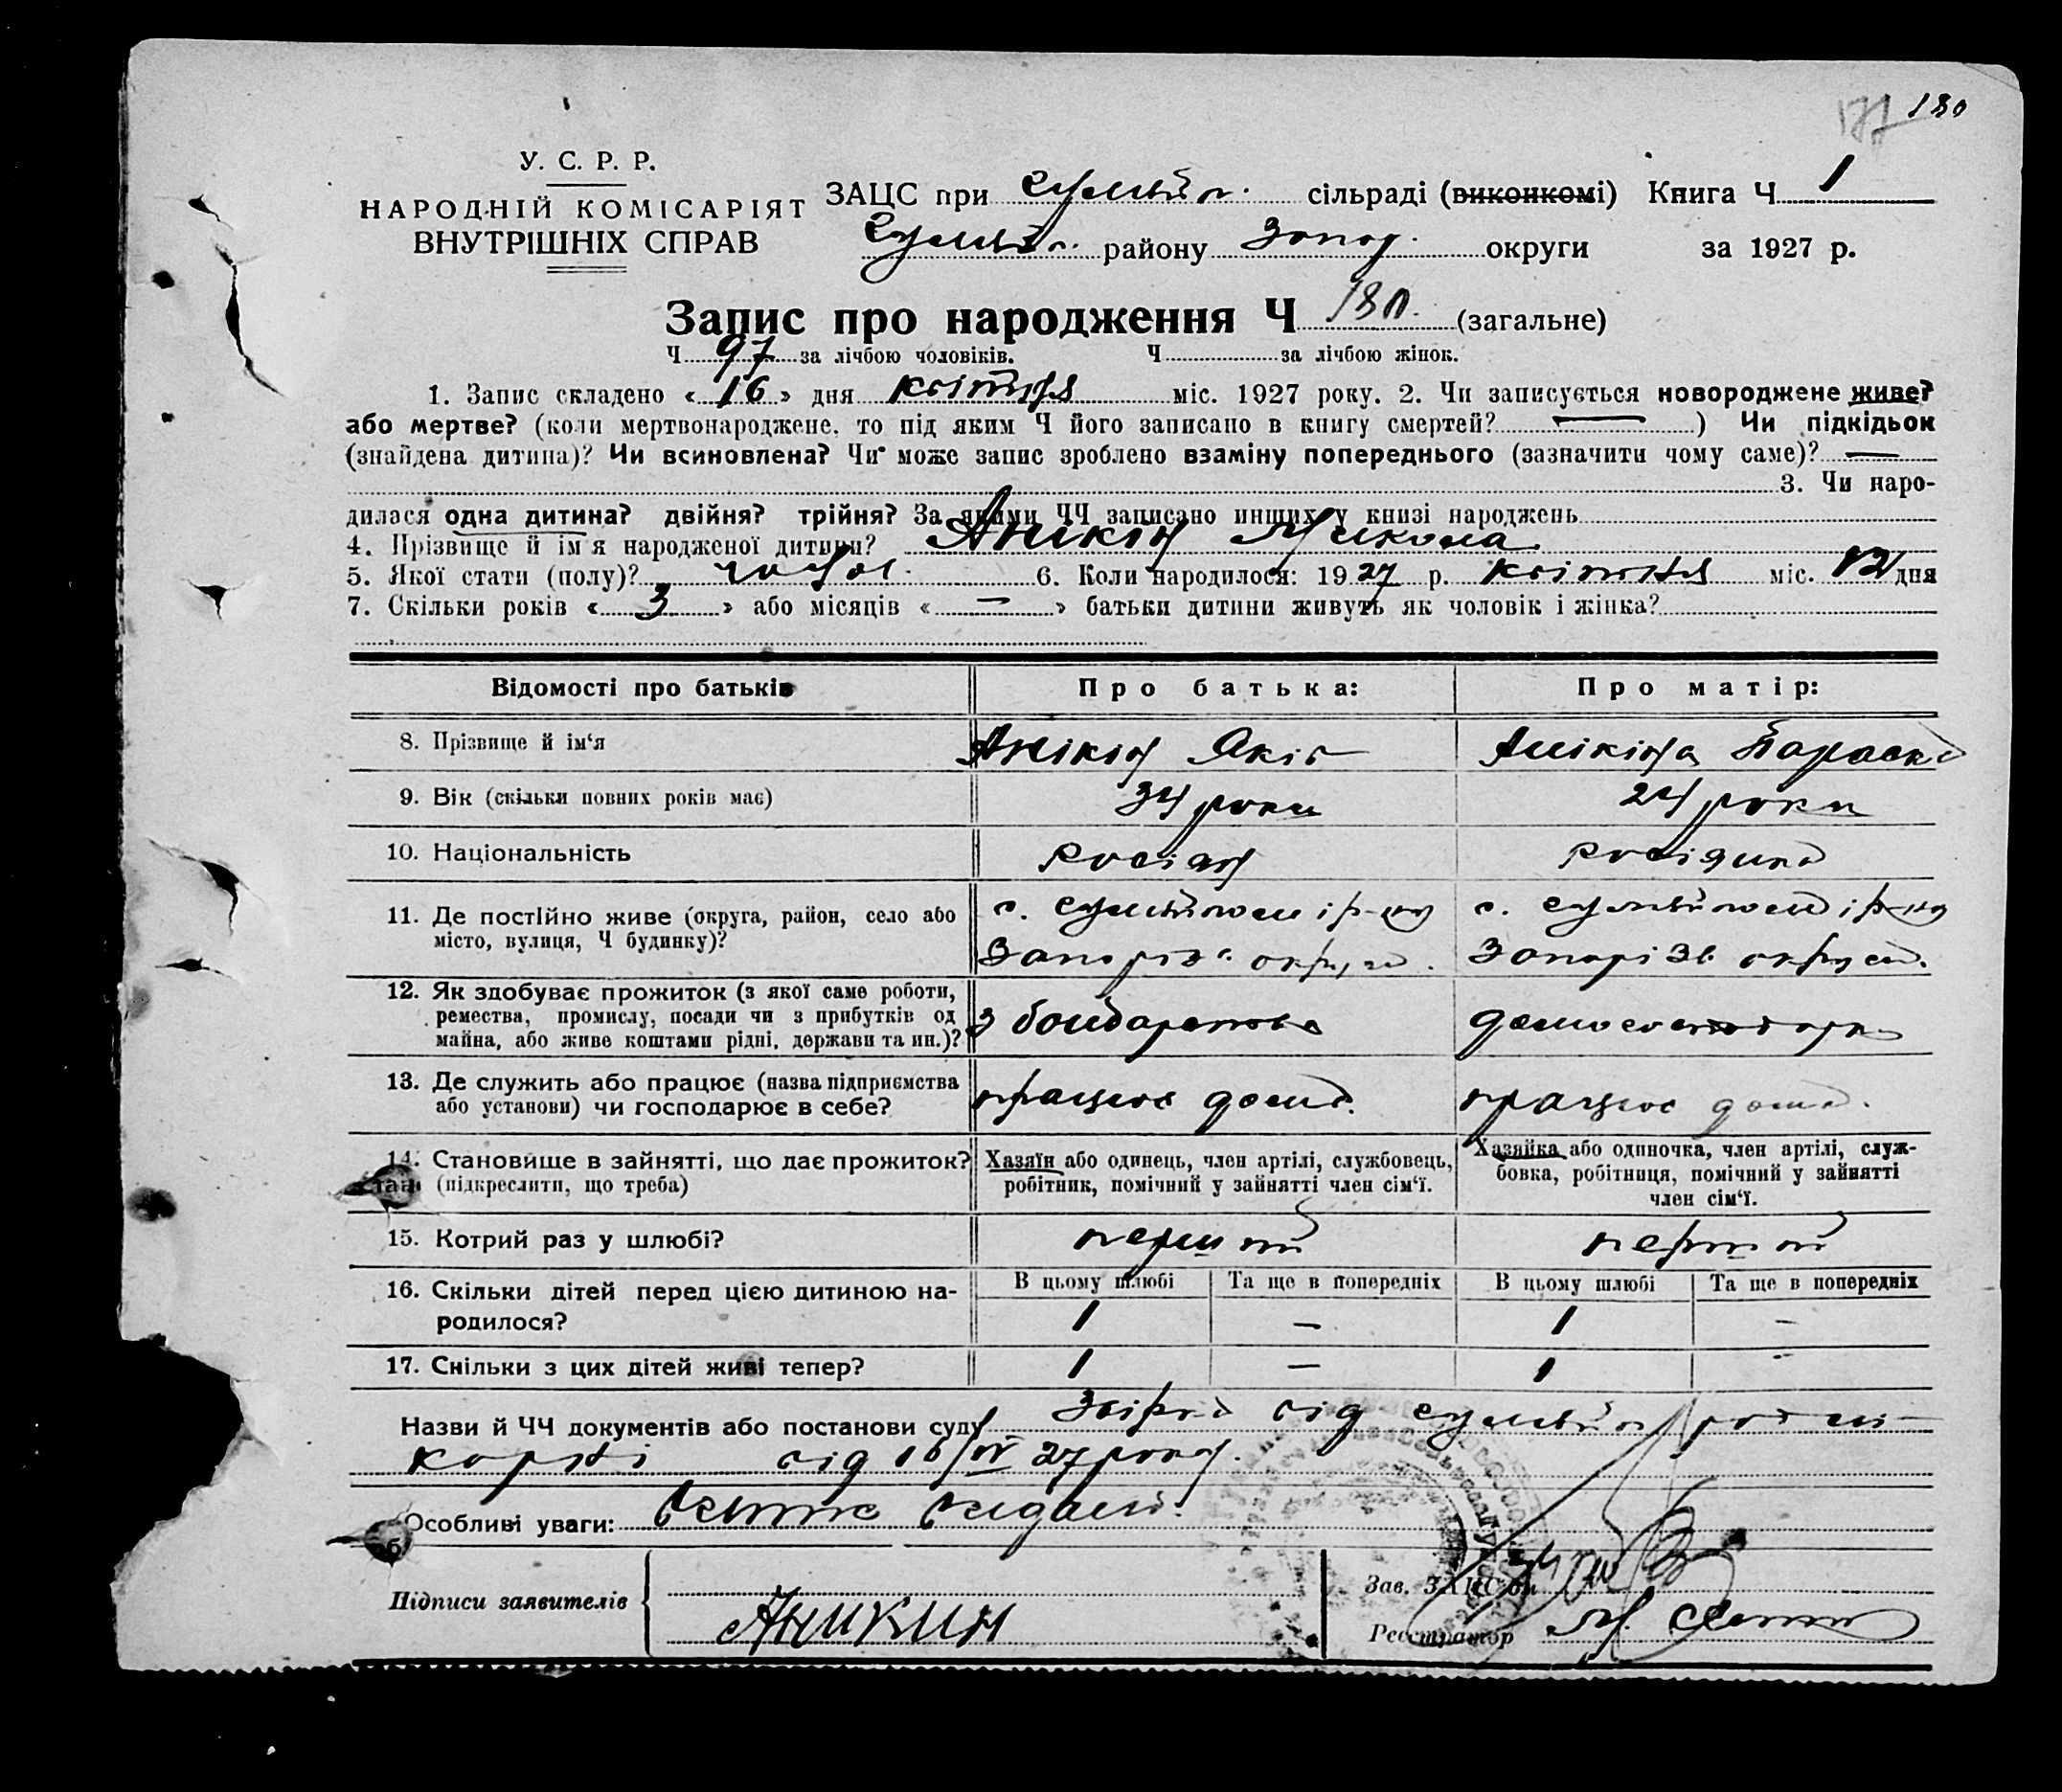 177 180
У. С. Р. Р.
НАРОДНІЙ КОМІСАРІЯТ
ВНУТРІШНІХ СПРАВ
ЗАЦС при сільраді (виконкомі) Книга Ч 1
району Запор. округи за 1927 р.
Запис про народження Ч 180. (загальне)
Ч 97 за лічбою чоловіків. Ч за лічбою жінок.
1. Запис складено « 16 » дня квітня міс. 1927 року. 2. Чи записується новороджене живе?
або мертве? (коли мертвонароджене, то під яким Ч його записано в книгу смертей? — ) Чи підкідьок
(знайдена дитина)? Чи всиновлена? Чи може запис зроблено взаміну попереднього (зазначити чому саме)? —
3. Чи наро-
дилася одна дитина? двійня? трійня? За якими ЧЧ записано инших у книзі народжень
4. Прізвище й ім'я народженої дитини? Анікін Микола
5. Якої стати (полу)? чол. 6. Коли народилося: 1927 р. квітня міс. 12 дня
7. Скільки років « 3 » або місяців « — » батьки дитини живуть як чоловік і жінка?
Відомості про батьків Про батька: Про матір:
8. Прізвище й ім'я Анікін Яків Анікіна Параска
9. Вік (скільки повних років має) 34 роки 24 роки
10. Національність росіян росіянка
11. Де постійно живе (округа, район, село або
місто, вулиця, Ч будинку)?
Запоріз. округи. Запорізв. округи.
12. Як здобуває прожиток (з якої саме роботи,
ремества, промислу, посади чи з прибутків од
майна, або живе коштами рідні, держави та ин.)?
з бондарства домогосподарка
13. Де служить або працює (назва підприємства
або установи) чи господарює в себе?
працює дома. працює дома.
14. Становище в зайнятті, що дає прожиток?
(підкреслити, що треба)
Хазяїн або одинець, член артілі, службовець,
робітник, помічний у зайнятті член сім'ї.
Хазяйка або одиночка, член артілі, служ-
бовка, робітниця, помічний у зайнятті
член сім'ї.
15. Котрий раз у шлюбі? перший перший
16. Скільки дітей перед цією дитиною на-
родилося?
В цьому шлюбі Та ще в попередніх В цьому шлюбі Та ще в попередніх
1 — 1 -
17. Скільки з цих дітей живі тепер? 1 — 1 -
Назви й ЧЧ документів або постанови суду від
від 16/IV 27 року.
Особливі уваги:
Підписи заявителів
Аникин
Зав. ЗАЦСом
Реєстратор